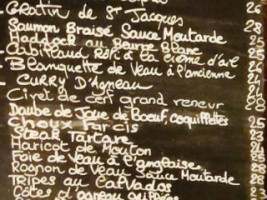 Gratin de St Jacques 26
Saumon Braisé Sauce Moutarde 28
Haddock au Beurre Blanc 25
Cabillaud Rôti à la crème d'ail
- Blanquette de Veau à l'ancienne
- Curry d'Agneau 24
Civet de cerf grand veneur
Daube de Joue de Boeuf, coquillettes 25
Farcis
Steak Tartare
Haricot de Mouton
Foie de Veau à l'anglaise
Rognon de Veau Sauce Moutarde 28
Tripes au Calvados
Côtes d'agneau